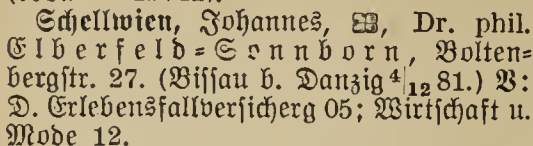 Schellwien, Johannes, Dr. phil.
Elberfeld=Sonnborn, Bolten=
bergstr. 27. (Bissau b. Danzig 4/12 81.) V:
D. Erlebensfallversicherg 05; Wirtschaft u.
Mode 12.